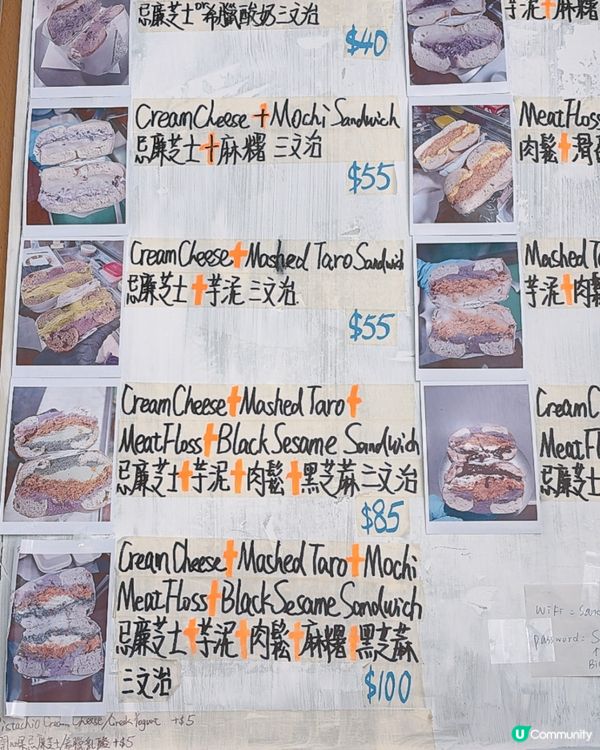 忌廉芝士or希臘酸奶三文治
$40
CreamCheese+Mochi Sandwich
忌廉芝士+麻糬 三文治
$55
CreamCheese+Mashed Taro Sandwich
忌廉芝士+芋泥 三文治
$55
CreamCheese+Mashed Taro+
MeatFloss+Black Sesame Sandwich
忌廉芝士+芋泥+肉鬆+黑芝蔴三文治
$85
Cream Cheese+Mashed Taro+Mochi
MeatFloss+Black Sesame Sandwich
忌廉芝士+芋泥+肉鬆+麻糬+黑芝蔴
三文治
$100
istachio Cream Cheese/Greek Yogurt +$5
忌廉芝士/希臘乳酪 +$5
芋泥+麻糬
MeatFloss
肉鬆+滑
Mashed T
芋泥+肉
CreamC
MeatFl
忌廉芝士
Wiff = San
password: S
U Community